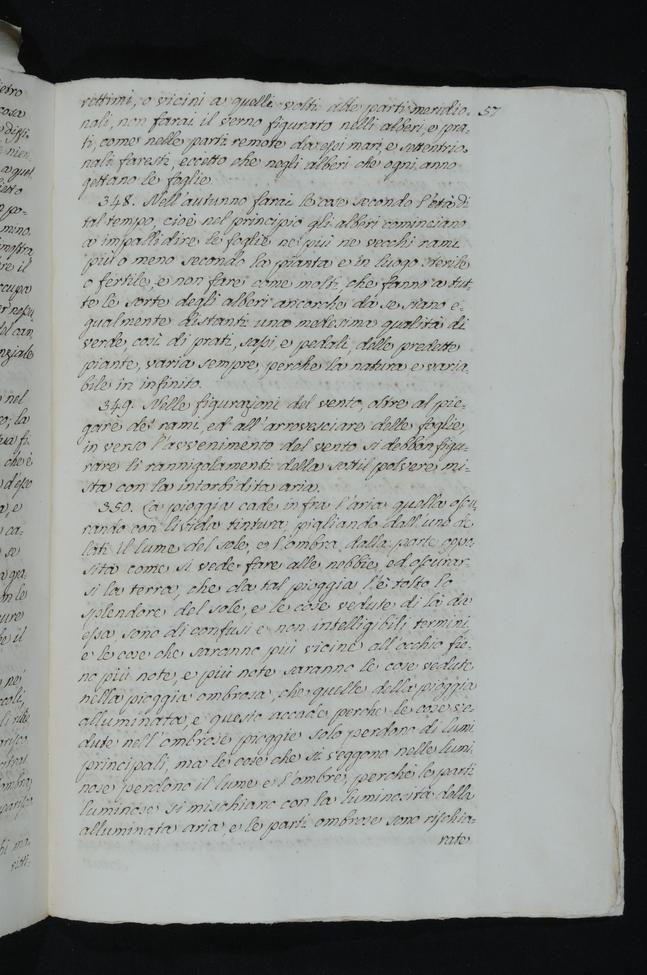 rittimi, o vicini a quelli volti alle parti meridio- 57
nali, non farai il verno figurato nelli alberi, e pra-
ti, come nelle parti remote da essi mari, e settentrio
nali faresti, eccetto che negli alberi che ogni anno
gettano le foglie.
348. Nell'autunno farai le cose secondo l'età di
tal tempo, cioè nel principio gli alberi cominciano
a impallidire le foglie ne' più ne vecchi rami
più o meno secondo la pianta e in luogo sterile
o fertile, e non fare come molti, che fanno a tut
te le sorte degli alberi ancorche da se stano e-
qualmente distanti una medesima qualità di
verde, così di prati, sapi e pedali, delle predette
piante, varia sempre, perche la natura e varia-
bile in infinito.
349. Nelle figurazioni del vento, oltre al pie-
gare de' rami, ed all'arrovesciare delle foglie,
in verso l'avvenimento del vento si debbon figu-
rare li rannigolamenti della sottil polvere, mi-
sta con la intorbidita aria.
350. La pioggia cade infra l'aria quella oscu-
rando con livida tintura, pigliando dall'uno de
lati il lume del sole, e l'ombra dalla parte oppo-
sita come si vede fare alle nebbie, ed oscurar-
si la terra, che da tal pioggia l'è tolto lo
splendore del sole, e le cose vedute di là da
essa, sono di confusi e non intelligibili termini
e le cose che saranno più vicine all'occhio fie-
no più note, e più note saranno le cose vedute
nella pioggia ombrosa, che quelle della pioggia
alluminata, e questo accade perche le cose ve-
dute nell'ombrose pioggie solo perdono di lumi
principali, ma le cose che si veggono nelle lumi
nose perdono il lume e l'ombre, perchè le parti
luminose si mischiano con la luminosità della
alluminata aria, e le parti ombrose sono rischia-
rate